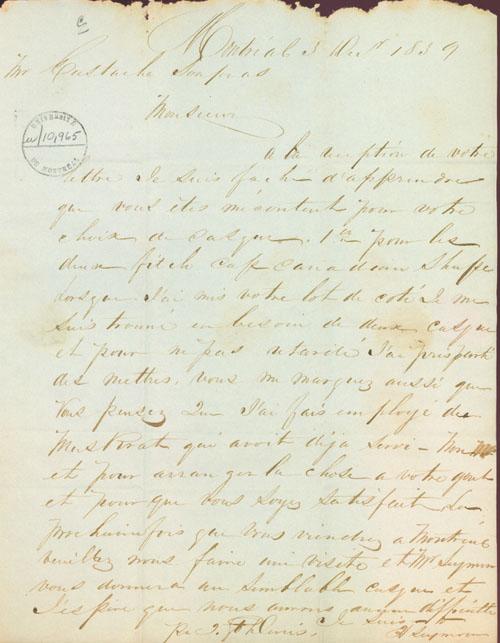 Montréal 3 Dect 1839
Mr Eustache Soupras
Monsieur
UNIVERSITÉ
u/10,965
DE MONTRÉAL
a la reception de votre
lettre Je suis faché d'apprendre
que vous étes mécontent pour votre
choix de casque. 1er pour les
deux fitch cap canadian Shape
lorsque J'ai mis votre lot de coté Je me
suis trouvé en besoin de deux casque
et pour ne pas retardé J'ai pris parti
des mettres. vous me marquez aussi que
vous pensez que J'ai fais employé des
Muskrat qui avoit déja servi - Non
et pour arranger la chose a votre gout
et pour que vous soyez satisfait La
prochainefois que vous viendrez a Montréal
veuillez nous faire une visite et Mr Seymour
vous donnera un semblable casque et
J'espère que nous aurons aucun
Je suis
Seymour